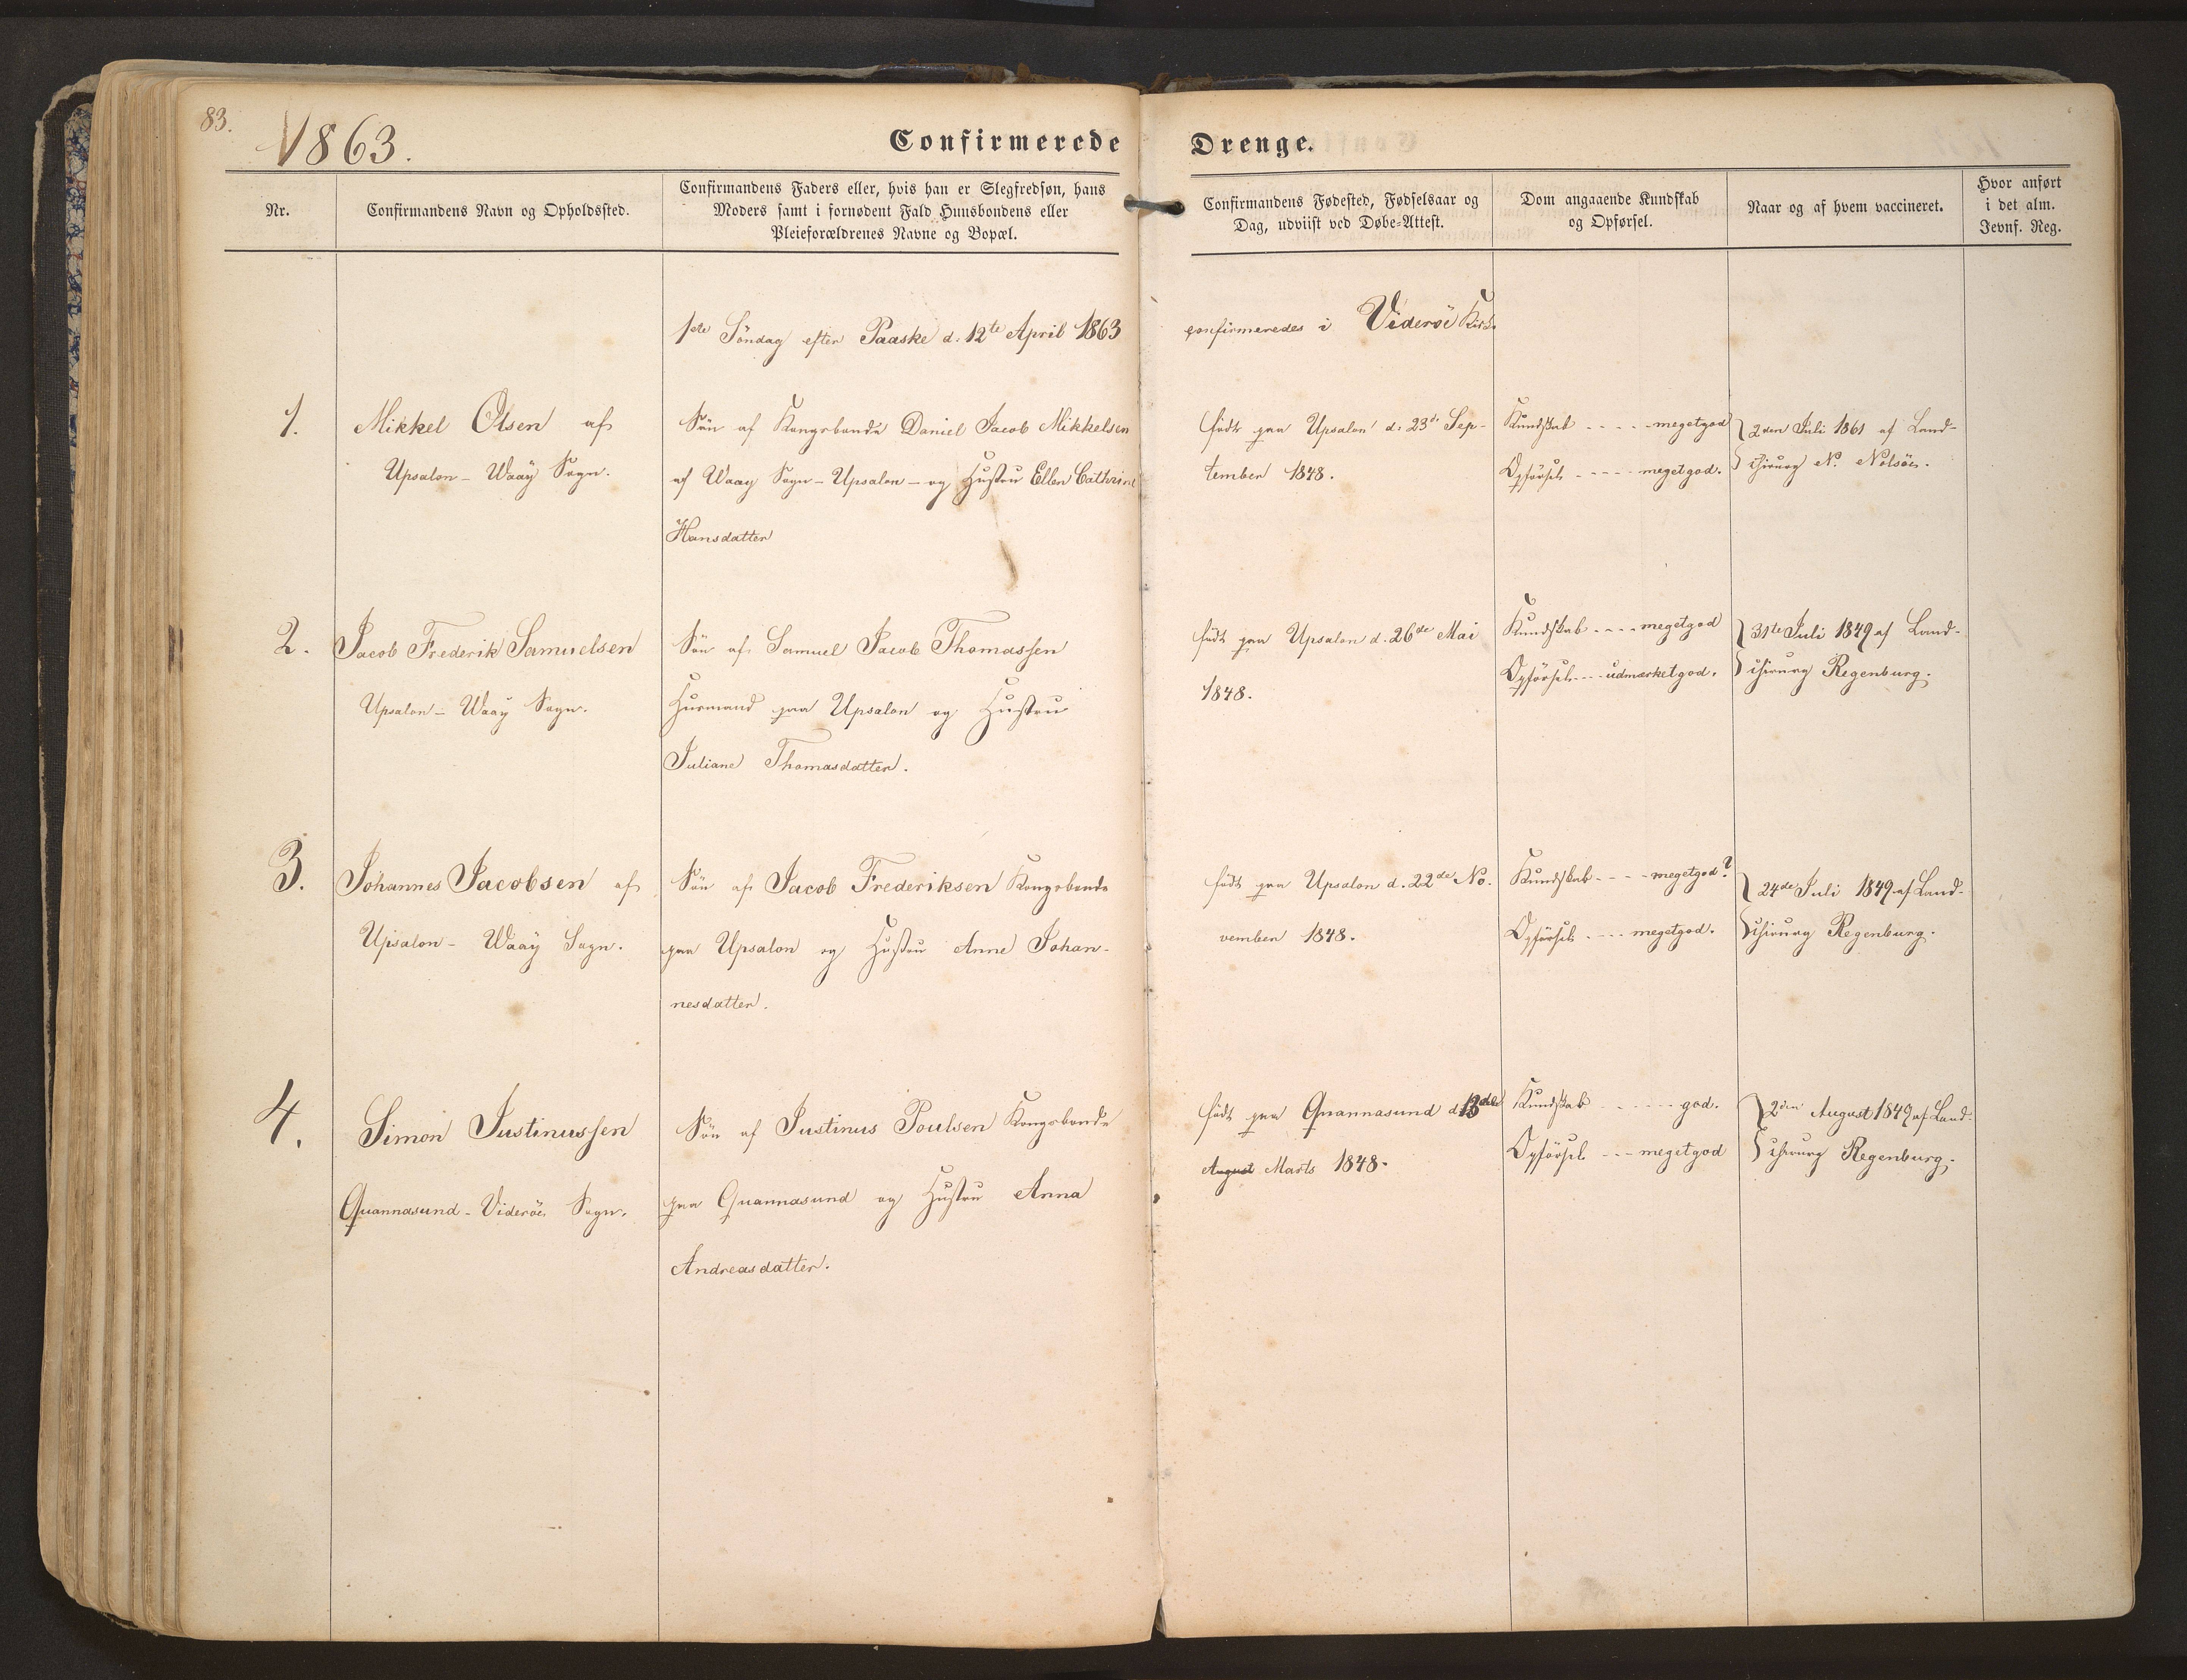 83.
1863.
Confirmerede Drenge.
Nr.
Confirmandens Navn og Opholdssted.
Confirmandens Faders eller, hvis han er Slegfredsøn, hans
Moders samt i fornødent Fald Huusbondens eller
Pleieforældrenes Navne og Bopæl.
Confirmandens Fødested, Fødselsaar og
Dag, udviist ved Døbe-Attest.
Dom angaaende Kundskab
og Opførsel.
Naar og af hvem vaccineret.
Hvor anført
i det alm.
Jevnf. Reg.
1ste Söndag efter Paaske d. 12te April 1863 confirmeredes i Viderøi Kirke
1.
Mikkel Olsen af
Upsalon - Waaÿ Sogn.
Sön af Kongsbonde Daniel Jacob Mikkelsen
af Waay Sogn - Upsalon - og Hustru Ellen Cathrine
Hansdatter
födt paa Upsalon d. 23de Sep-
tember 1848.
Kundskab - - - - - megetgod
Opförsel - - - - megetgod.
2den Juli 1861 af Land-
chirurg N. Nolsöe.
2.
Jacob Frederik Samuelsen
Upsalon - Waay Sogn.
Sön af Samuel Jacob Thomassen
Husmand paa Upsalon og Hustru
Juliane Thomasdatter.
födt paa Upsalon d. 26de Mai
1848.
Kundskab - - - - megetgod
Opförsel - - - udmærketgod.
31te Juli 1849 af Land-
chirurg Regenburg.
3.
Johannes Jacobsen af
Upsalon - Waaÿ Sogn.
Sön af Jacob Frederiksen Kongsbonde
paa Upsalon og Hustru Anne Johan-
nesdatter.
födt paa Upsalon d. 22de No-
vember 1848.
Kundskab - - - - megetgod?
Opförsel - - - - megetgod.
24de Juli 1849 af Land-
chirurg Regenburg.
4.
Simon Justinussen
Quannasund - Viderøe Sogn.
Sön af Justinus Poulsen Kongsbonde
paa Quannasund og Hustru Anna
Andreasdatter.
födt paa Quannasund d. 13de
August Marts 1848.
Kundskab - - - - - - god.
Opförsel - - - megetgod
2den August 1849 af Land-
chirurg Regenburg.